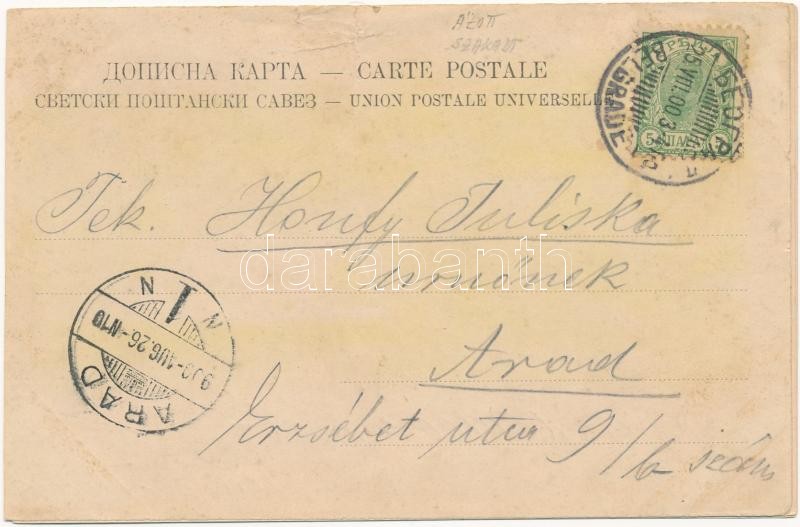 ÁZOTT
SZAKADT
ДОПИСНА КАРТА — CARTE POSTALE
СВЕТСКИ ПОШТАНСКИ САВЕЗ — UNION POSTALE UNIVERSELLE
БЕОГРАД
BELGRADE
VII.00
5 ПАРА 5
Tek. Honfy Juliska
úrnőnek
Arad
Erzsébet utca 9/b szám
ARAD
900 AUG. 26 N10
N N
1
darabanth